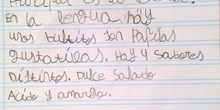 En la lengua hay
unos bultitos son Papilas
gustativas. Hay 4 Sabores
Distintos. Dulce Salado
Acido y amargo.